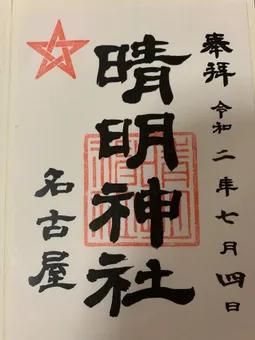 奉拝 令和二年七月四日
晴明神社
名古屋